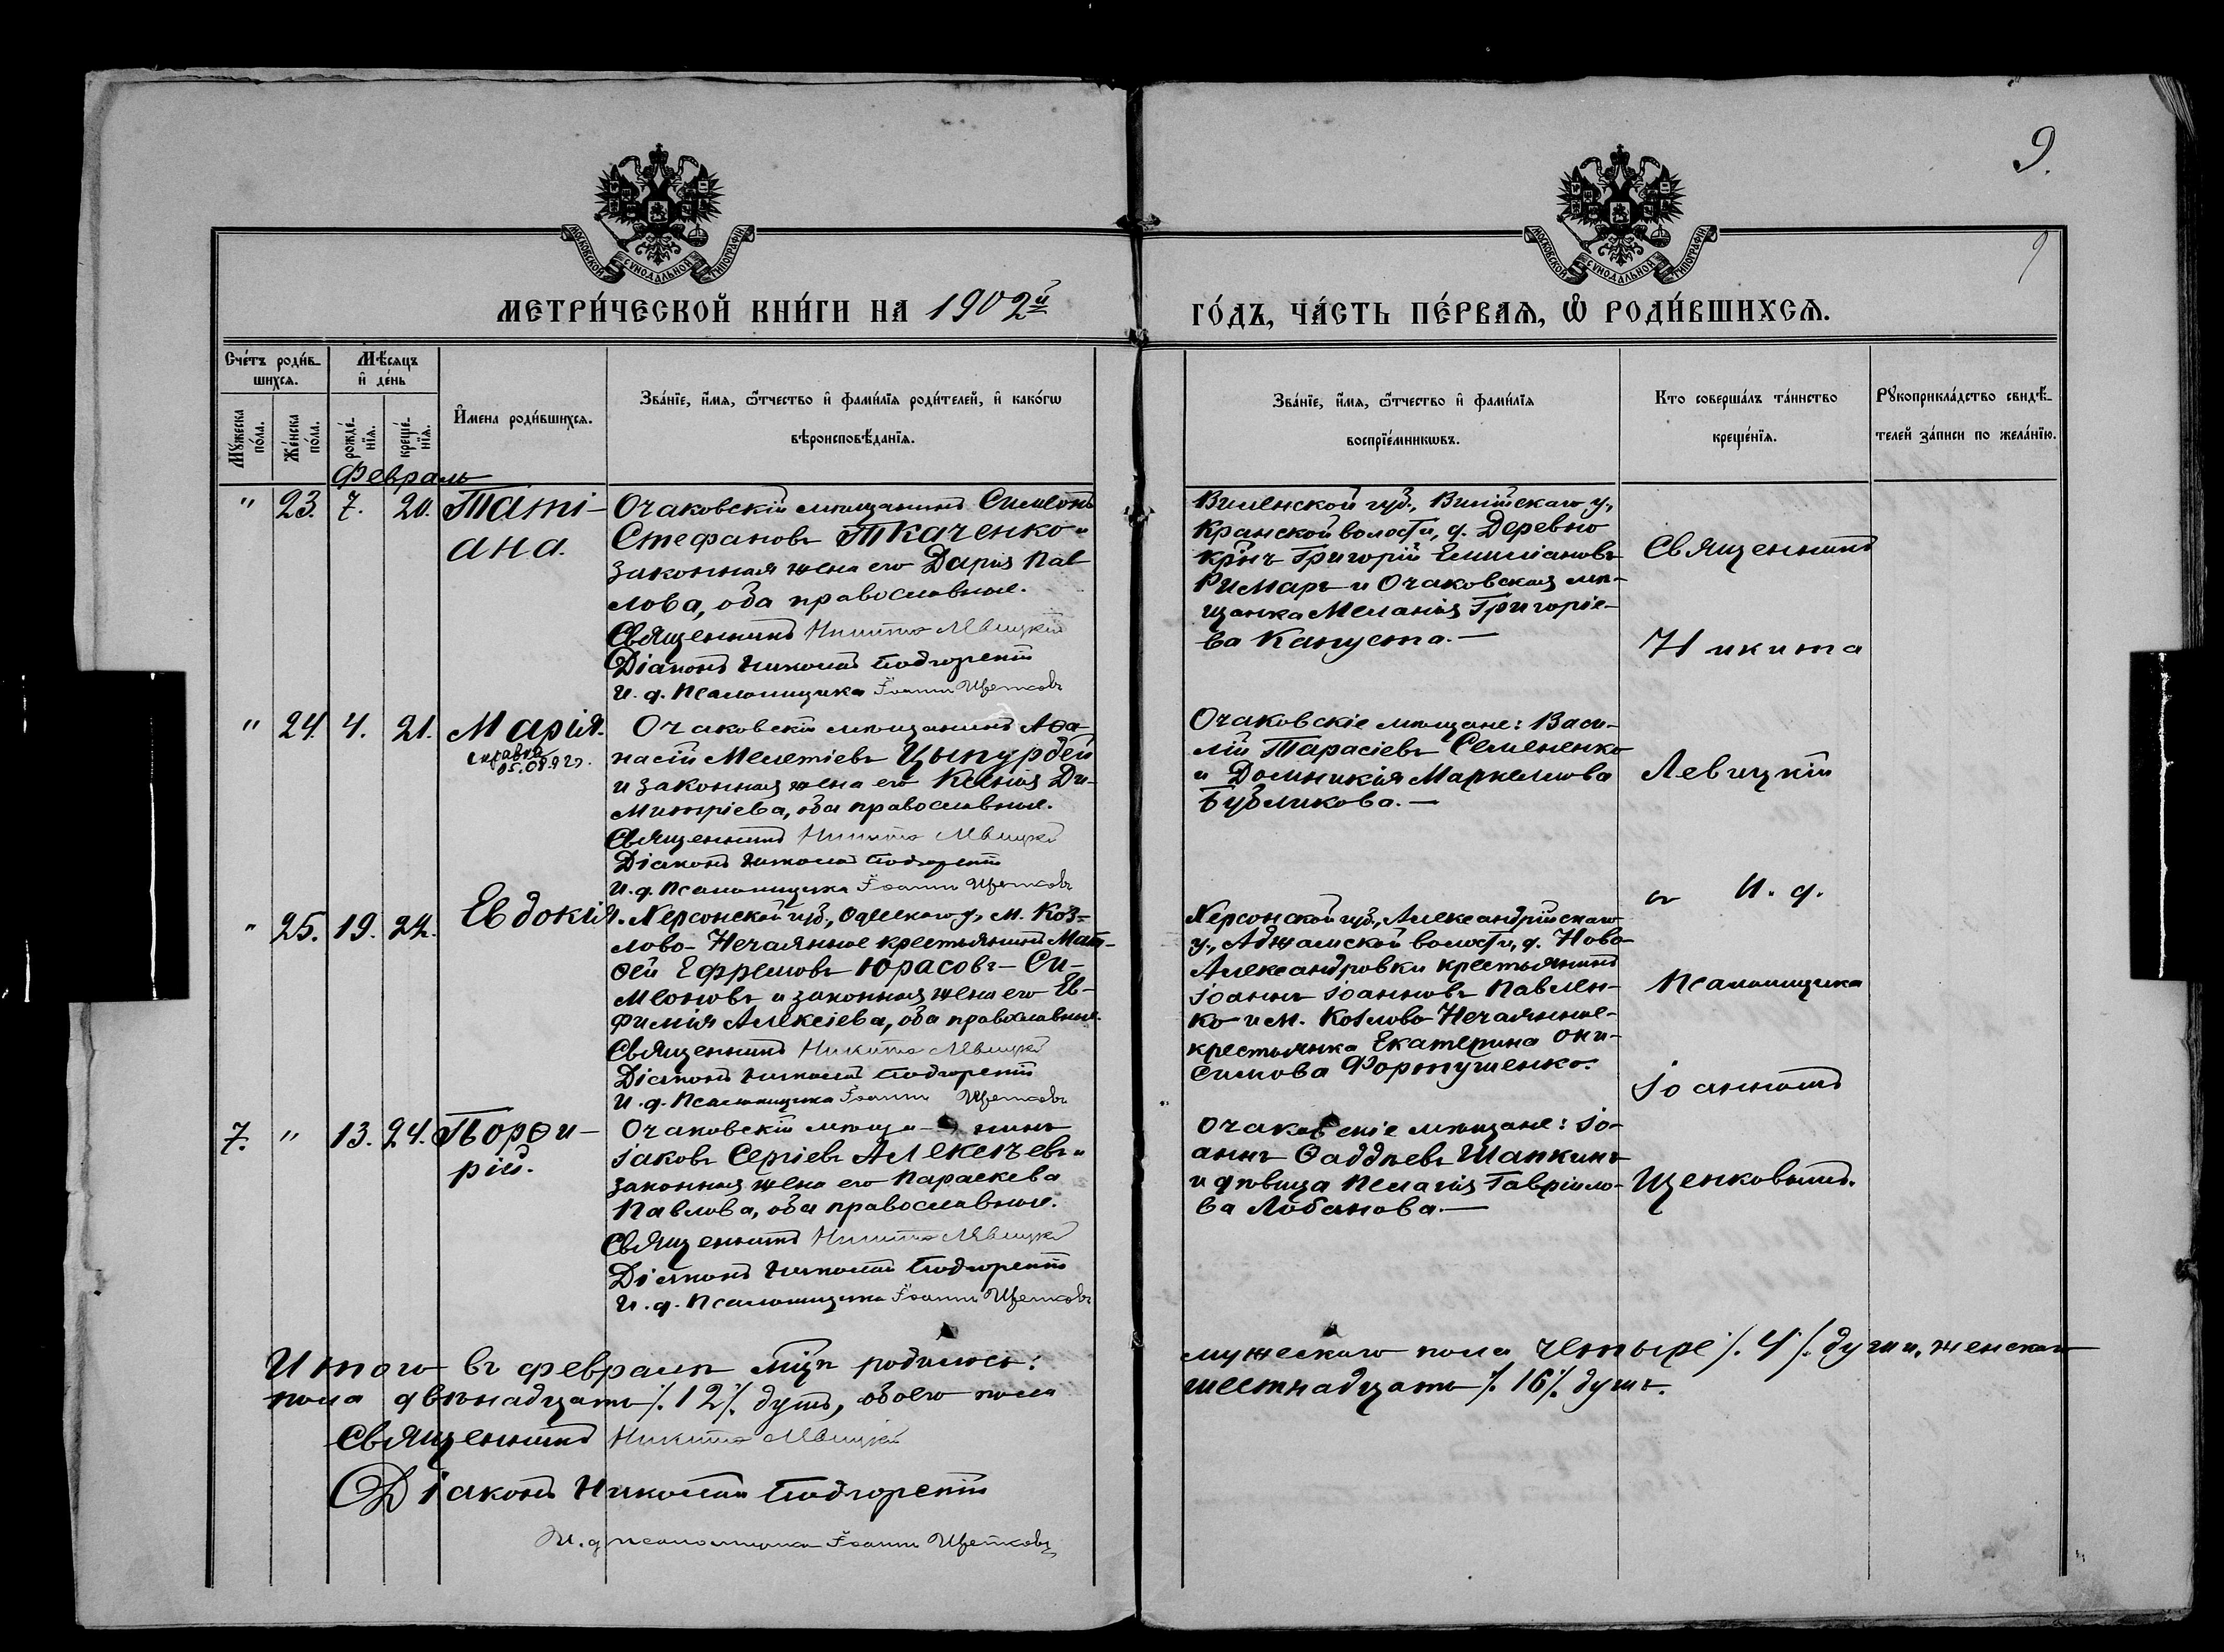 9.
9
МОСКОВСКОЙ СѴНОДАЛЬНОЙ ТИПОГРАФІИ
МОСКОВСКОЙ СѴНОДАЛЬНОЙ ТИПОГРАФІИ
МЕТРИ́ЧЕСКОЙ КНИ́ГИ НА 1902й
ГО́ДЪ, ЧА́СТЬ ПЕ́РВАѦ, Ѽ РОДИ́ВШИХСѦ.
Счéтъ роди́в-
шихсѧ.
Мѣ́сѧцъ
и҆ де́нь
Мꙋ́жеска
по́ла.
Же́нска
по́ла.
рожде́-
нїѧ.
креще́-
нїѧ.
И҆мена роди́вшихсѧ.
Зва́нїе, и҆́мѧ, ѻ҆́тчество и҆ фами́лїѧ роди́телей, и҆ како́гѡ
вѣроисповѣ́данїѧ.
Зва́нїе, и҆́мѧ, ѻ҆́тчество и҆ фами́лїѧ
воспрїе́мникѡвъ.
Кто соверша́лъ та́инство
креще́нїѧ.
Рꙋкоприкла́дство свидѣ́-
телей за́писи по жела́нїю.
Февраль
" 23. 7. 20. Таті-
ана.
Очаковскій мѣщанинъ Симеонъ
Стефановъ Ткаченко и
законная жена его Дарія Пав
лова, оба православные.
Священникъ Никита Левицкій
Діаконъ Николай Подгорскій
И. д. Псаломщика Іоаннъ Щенковъ
Виленской губ., Вилійскаго у.,
Крайской волости, д. Деревно
кр͠нъ Григорій Емиліановъ
Римаръ и Очаковская мѣ-
щанка Меланія Григоріе-
ва Капуста.—
" 24. 4. 21. Марія.
справка
05.08.92г.
Очаковскій мѣщанинъ Аѳа-
насій Мелетіевъ Цыпурдей
и законная жена его Ксенія Ди-
митріева, оба православные.
Священникъ Никита Левицкій
Діаконъ Николай Подгорскій
И. д. Псаломщика Іоаннъ Щенковъ
Очаковскіе мѣщане: Васи-
лій Тарасіевъ Семененко
и Домникія Маркеллова
Бубликова.—
" 25. 19. 24. Евдокія.
Херсонской губ., Одесскаго у., м. Коз-
лово-Нечаянное крестьянинъ Мат-
ѳей Ефремовъ Юрасовъ-Си-
меоновъ и законная жена его Ев-
фимія Алексіева, оба православные.
Священникъ Никита Левицкій
Діаконъ Николай Подгорскій
И. д. Псаломщика Іоаннъ Щенковъ
Херсонской губ., Александрійскаго
у., Аджамской волости, д. Ново-
Александровки крестьянинъ
Іоаннъ Іоанновъ Павлен-
ко и м. Козлово-Нечаянное-
крестьянка Екатерина Они-
симова Фортушенко.
7. " 13. 24. Порѳи-
рій.
Очаковскій мѣща- нинъ
Іаковъ Сергіевъ Алексѣевъ и
законная жена его Параскева
Павлова, оба православные.
Священникъ Никита Левицкій
Діаконъ Николай Подгорскій
И. д. Псаломщика Іоаннъ Щенковъ
Очаковскіе мѣщане: Іо-
аннъ Ѳаддѣевъ Шапкинъ
и дѣвица Пелагія Гавріило-
ва Лобанова.—
Священникъ
Никита
Левицкій
съ И. д.
Псаломщика
Іоанномъ
Щенковымъ.
Итого въ февралѣ мц͠ѣ родилось:
мужескаго пола четыре /.4/. души, женскаго
пола двѣнадцать /.12/. душъ, обоего пола
шестнадцать /.16/. душъ.
Священникъ Никита Левицкій
Діаконъ Николай Подгорскій
И. д. псаломщика Іоаннъ Щенковъ